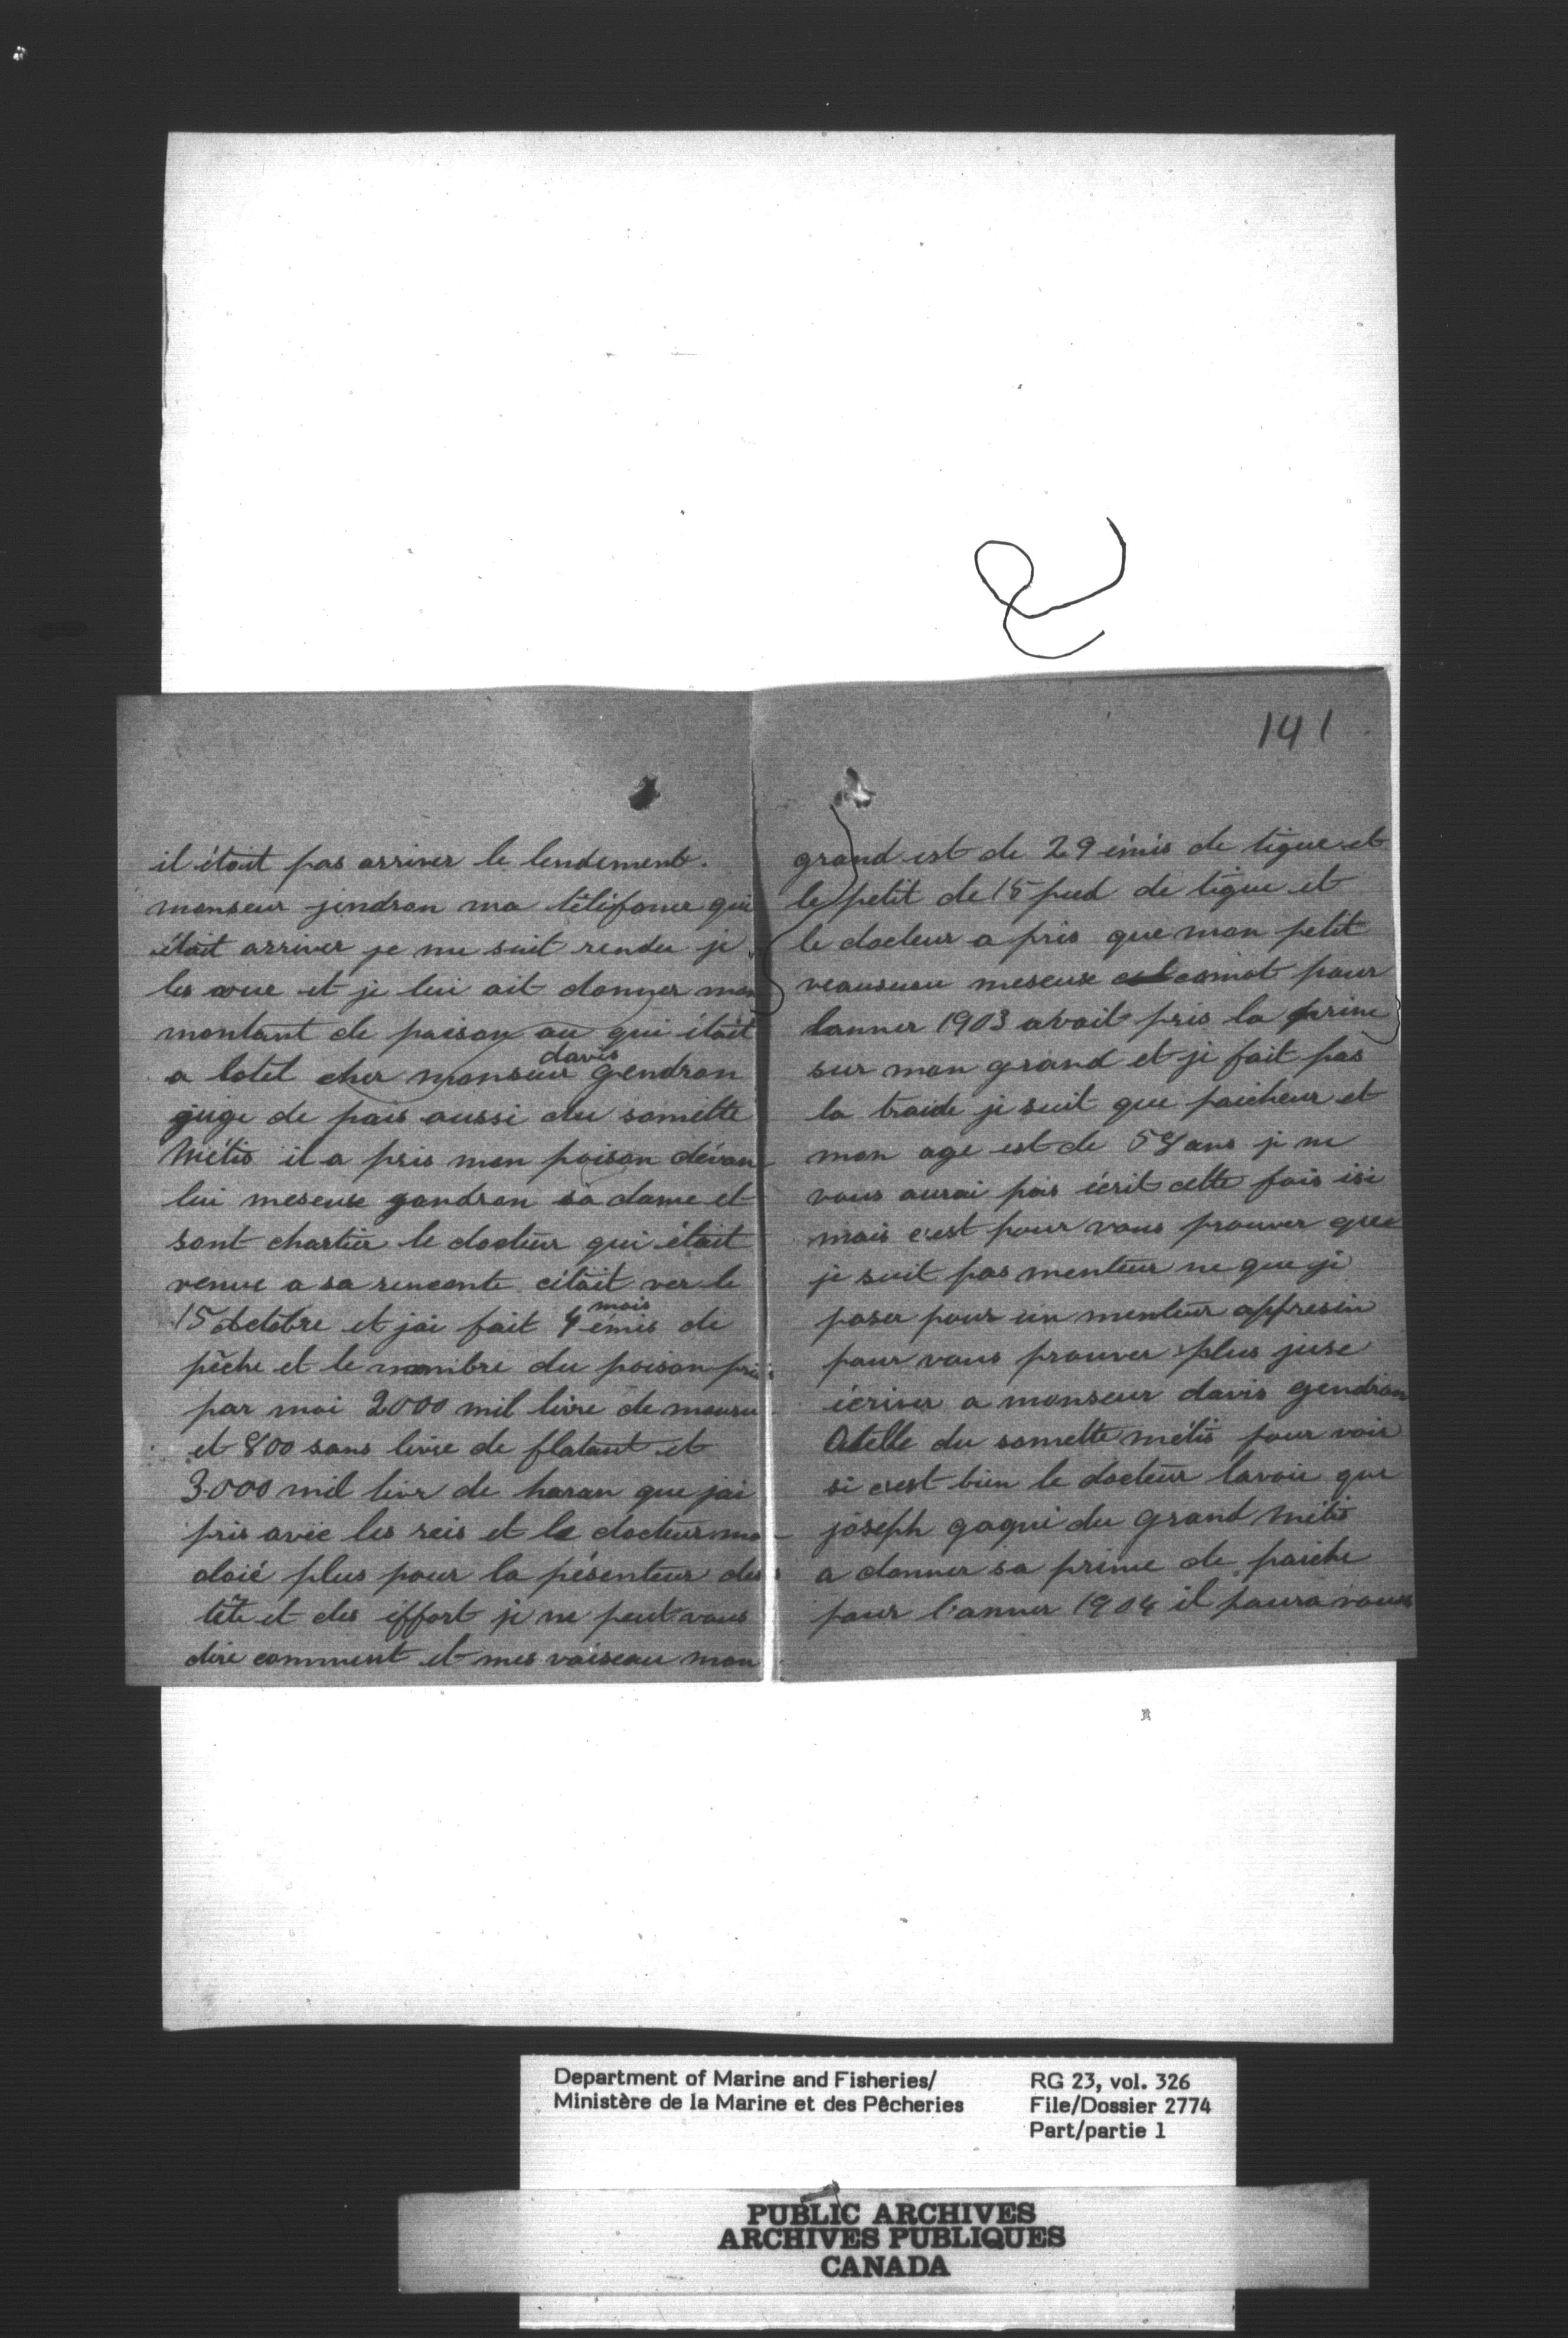 141
il était pas arriver le lendement.
monseur jendron ma téléfoner qui
était arriver je me suit rendu je
les vue et je lui ait donner mon
montant de poison au qui était
a lotel cher monseur davis gendron
juge de pais aussi du somette
Métis il a pris mon poison dévan
lui meseuse gandron sa dame et
sont chartier le docteur qui était
venue a sa renconte cétait ver le
15 octobre et jai fait 4 mois émis de
pêche et le nombre du poison pris
par moi 2000 mil livre de mouru
et 800 sans livre de flatant et
3.000 mil livr de haran que jai
pris avec les reis et le docteur ma
aloié plus pour la pésenteur des
tête et des effort je ne peut vous
dire comment et mes vaiseau mon
grand est de 29 émis de tigue et
le petit de 15 pied de tigue et
le docteur a pris que mon petit
veauseau meseux comot pour
lanner 1903 avait pris la prime
sur mon grand et je fait pas
la traide je suit que paicheur et
mon age est de 58 ans je ne
vous aurai pas écrit cette fois isi
mais c'est pour vous prouver que
je suit pas menteur ne que je
paser pour un menteur appresin
pour vous prouver plus juse
écriver a monseur davis gendron
Otelle du somette métis pour voir
si c'est bien le docteur lavoie que
joseph gagné du grand Métis
a donner sa prime de paiche
pour l'anner 1904 il poura vous
Department of Marine and Fisheries/
Ministère de la Marine et des Pêcheries
RG 23, vol. 326
File/Dossier 2774
Part/partie 1
PUBLIC ARCHIVES
ARCHIVES PUBLIQUES
CANADA